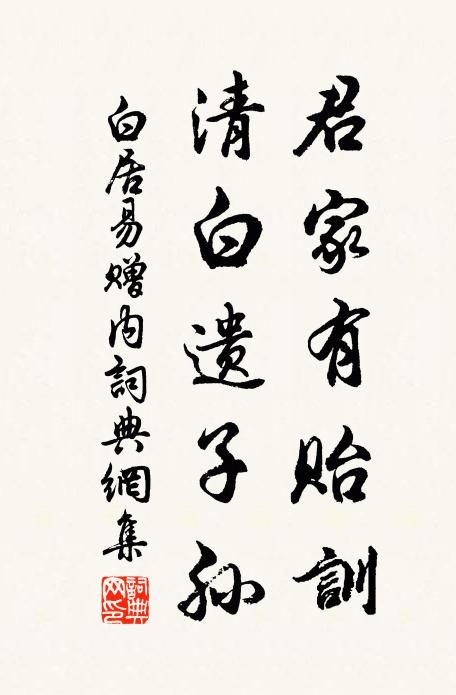 君家有貽訓
清白遺子孫
白居易贈内詞典網集
詞典網印